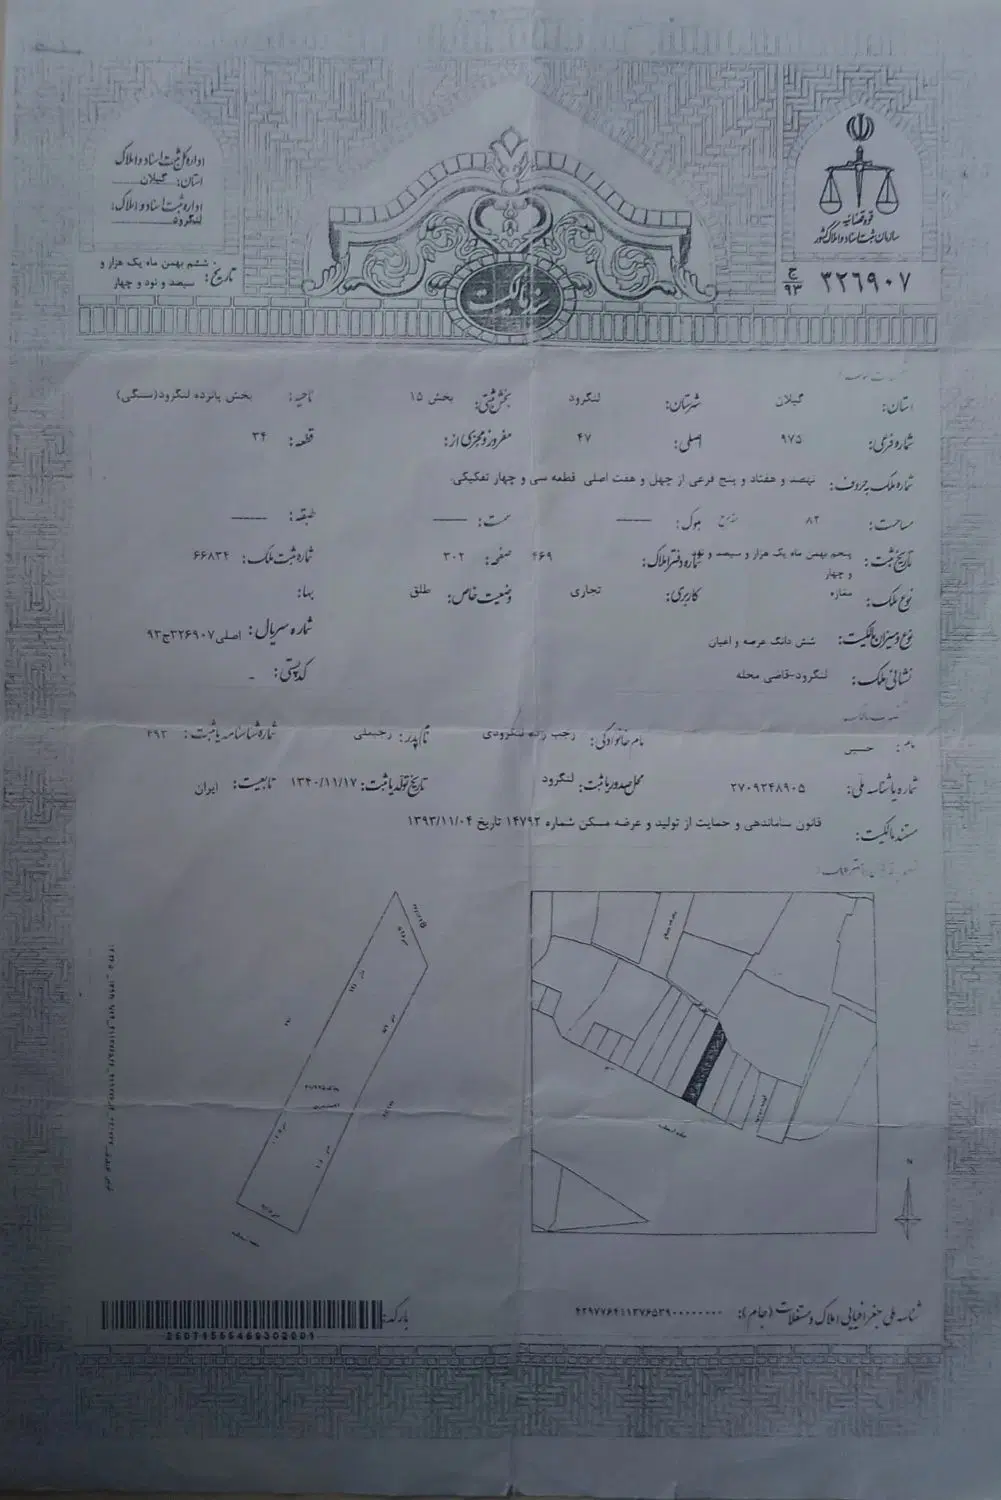 قوه قضائیه
سازمان ثبت اسناد و املاک کشور
۳۲۶۹۰۷ ج ۹۳
سند مالکیت
اداره کل ثبت اسناد و املاک
استان: گیلان
اداره ثبت اسناد و املاک:
لنگرود
تاریخ: ششم بهمن ماه یک هزار و
سیصد و نود و چهار
استان: گیلان شهرستان: لنگرود بخش ثبتی: بخش ۱۵ ناحیه: بخش پانزده لنگرود(سنگی)
شماره فرعی: ۹۷۵ اصلی: ۴۷ مفروز و مجزی از: قطعه: ۳۴
شماره ملک به حروف: نهصد و هفتاد و پنج فرعی از چهل و هفت اصلی قطعه سی و چهار تفکیکی.
مساحت: ۸۲ بلوک: —— سمت: —— طبقه: ——
تاریخ ثبت: پنجم بهمن ماه یک هزار و سیصد و نود شماره دفتر املاک: ۴۶۹ صفحه: ۳۰۲ شماره ثبت ملک: ۶۶۸۳۴
و چهار
نوع ملک: مغازه کاربری: تجاری وضعیت خاص: طلق بهاء:
نوع و میزان مالکیت: شش دانگ عرصه و اعیان شماره سریال: اصلی۳۲۶۹۰۷ج۹۳
نشانی ملک: لنگرود-قاضی محله کد پستی: -
نام: حسین نام خانوادگی: رجب زاده لنگرودی نام پدر: رجبعلی شماره شناسنامه یا ثبت: ۴۹۳
شماره یا شناسه ملی: ۲۷۰۹۲۴۸۹۰۵ محل صدور یا ثبت: لنگرود تاریخ تولد یا ثبت: ۱۳۴۰/۱۱/۱۷ تابعیت: ایران
مستند مالکیت: قانون ساماندهی و حمایت از تولید و عرضه مسکن شماره ۱۴۷۹۲ تاریخ ۱۳۹۳/۱۱/۰۴
N
شناسه ملی جغرافیایی املاک و مستغلات (جام):
بارکد: